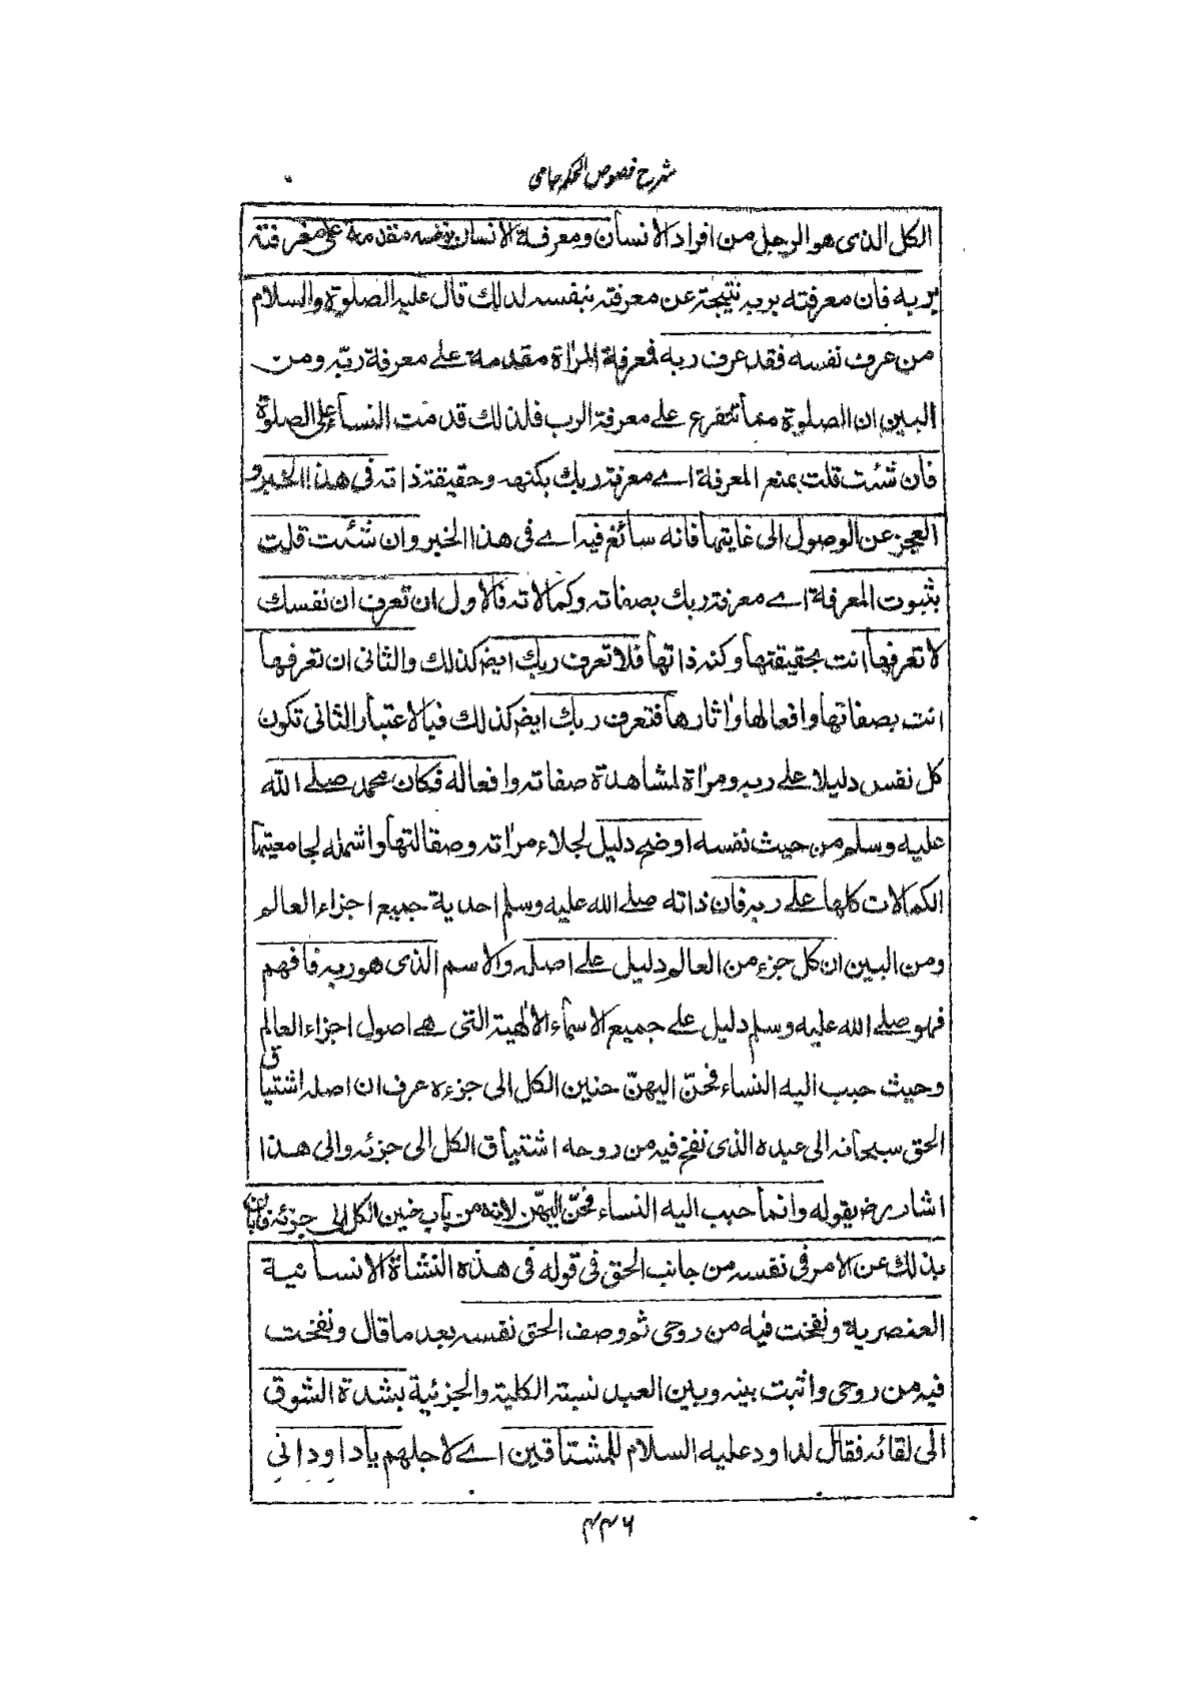 شرح فصوص الحكم جامى
الكل الذى هو الرجل من افراد الانسان ومعرفة الانسان بنفسه مقدمة على معرفته
بربه فان معرفته بربه نتيجة عن معرفته بنفسه لذلك قال عليه الصلوة والسلام
من عرف نفسه فقد عرف ربه فمعرفة المرأة مقدمة علے معرفة ربّه ومن
البين ان الصلوة مما تتفرع علے معرفة الرب فلذلك قدمت النساء على الصلوة
فان شئت قلت بمنع المعرفة اے معرفة ربك بكنهه وحقيقة ذاته فى هذا الخبر و
العجز عن الوصول الى غايتها فانه سائغ فيه اے فى هذا الخبر وان شئت قلت
بثبوت المعرفة اے معرفة ربك بصفاته وكمالاته فالاول ان تعرف ان نفسك
لا تعرفها انت بحقيقتها وكنه ذاتها فلا تعرف ربك ايضا كذلك والثانى ان تعرفها
انت بصفاتها وافعالها واٰثارها فتعرف ربك ايضا كذلك فبالاعتبار الثانى تكون
كل نفس دليلا على ربه ومراٰة لمشاهدة صفاته وافعاله فكان محمد صلے الله
عليه وسلم من حيث نفسه اوضح دليل لجلاء مراٰته وصقالتها واشمله لجامعيتها
الكمالات كلها علے ربه فان ذاته صلے الله عليه وسلم احدية جميع اجزاء العالم
ومن البين ان كل جزء من العالم دليل علے اصله والاسم الذى هو ربه فافهم
فهو صلے الله عليه وسلم دليل علے جميع الاسماء الالٰهية التى هے اصول اجزاء العالم
وحيث حبب اليه النساء فحنّ اليهنّ حنين الكل الى جزءه عرف ان اصله اشتياق
الحق سبحانه الى عبده الذى نفخ فيه من روحه اشتياق الكل الى جزئه والى هذا
اشار رض بقوله وانما حبب اليه النساء فحنّ اليهنّ لانه من باب حنين الكل الى جزئه فابان
بذلك عن الامر فى نفسه من جانب الحق فى قوله فى هذه النشأة الانسانية
العنصرية ونفخت فيه من روحى ثم وصف الحق نفسه بعد ما قال ونفخت
فيه من روحى واثبت بينه وبين العبد نسبة الكلية والجزئية بشدة الشوق
الى لقائه فقال لداود عليه السلام للمشتاقين اے لاجلهم ياداود انى
۴۴۶